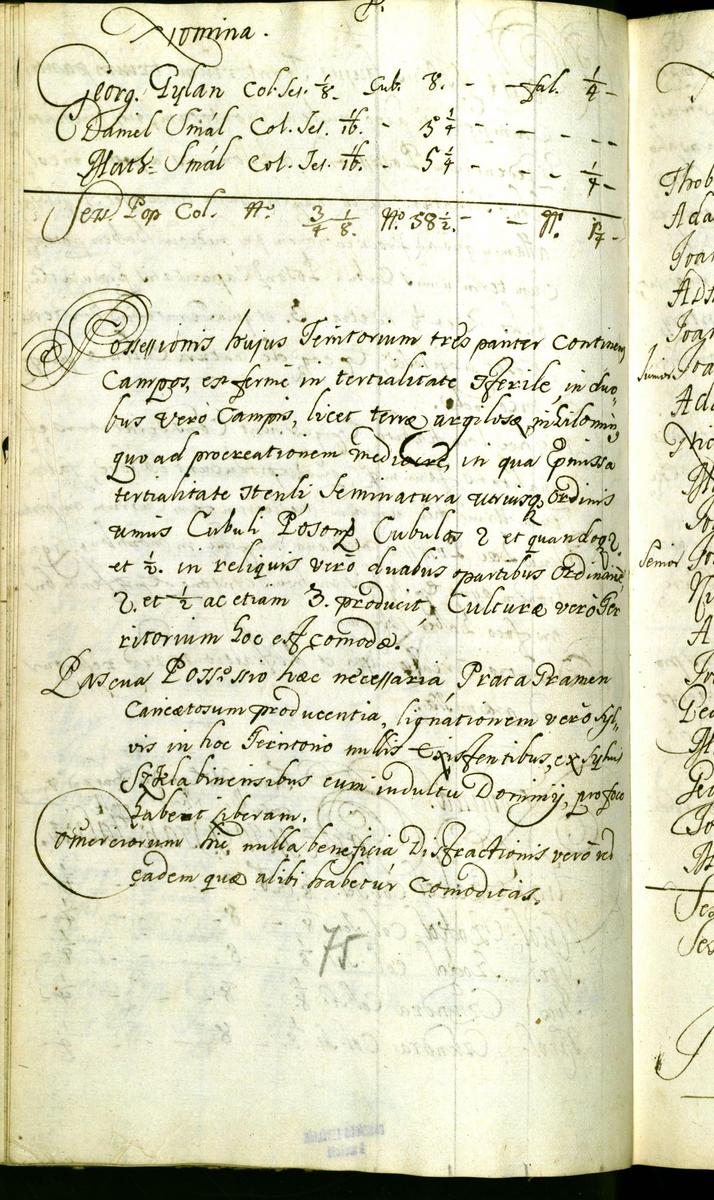 Nomina.
Georg. Gylan Col. Ses. 1/8. Cub. 8. - - fal. 1/4 -
Daniel Smál Col. Ses. 1/16. - 5 1/4 - - - -
Math: Smál Col. Ses. 1/16. - 5 1/4 - - - 1/4 -
Sess Pop Col. No. 3/4 1/8. No. 58 1/2. - - No.
Possessionis hujus Territorium tres pariter Continens
Campos, est fermè in tertialitate Sterile, in duo-
bus verò Campis, licet terræ argilosæ, nihilomin9
quo ad procreationem mediocre, in qua præmissa
tertialitate sterili Seminatura utriusq. Ordinis
unius Cubuli Poson. Cubulos 2 et quandoq. 2.
et 1/2. in reliquis verò duabus partibus Ordinariè
2. et 1/2 ac etiam 3. producit, Culturæ verò Ter
ritorium hoc est comodæ.
Pascua Possessio hæc necessaria Prata Gramen
Caricætosum producentia, lignationem verò Syl-
vis in hoc Teritorio nullis existentibus, ex Sylvis
Szklabinensibus cum indultu Dominij, pro foco
habent liberam.
Comerciorum hic nulla beneficia Distractionis verò
eadem quæ alibi habetur Comoditas.
75
Thob
Ada
Joan
Ad
Joan
Junior Joa
Ada
Nic
Senior Jo
A
Geo
Ge
Jo
Ses